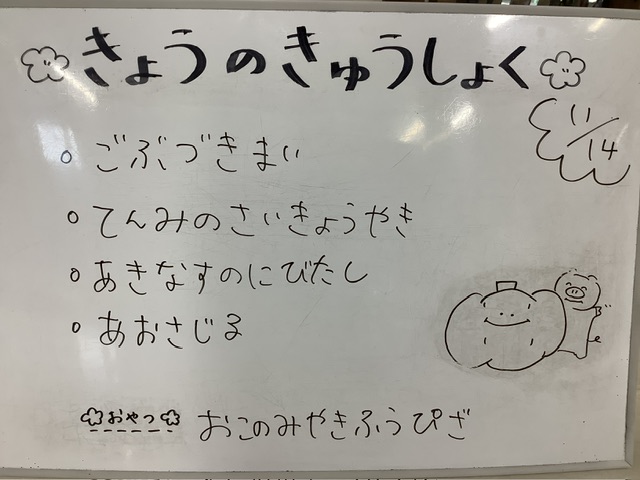 きょうのきゅうしょく
11/14
○ ごぶづきまい
○ てんみのさいきょうやき
○ あきなすのにびたし
○ あおさじる
おやつ おこのみやきふうぴざ